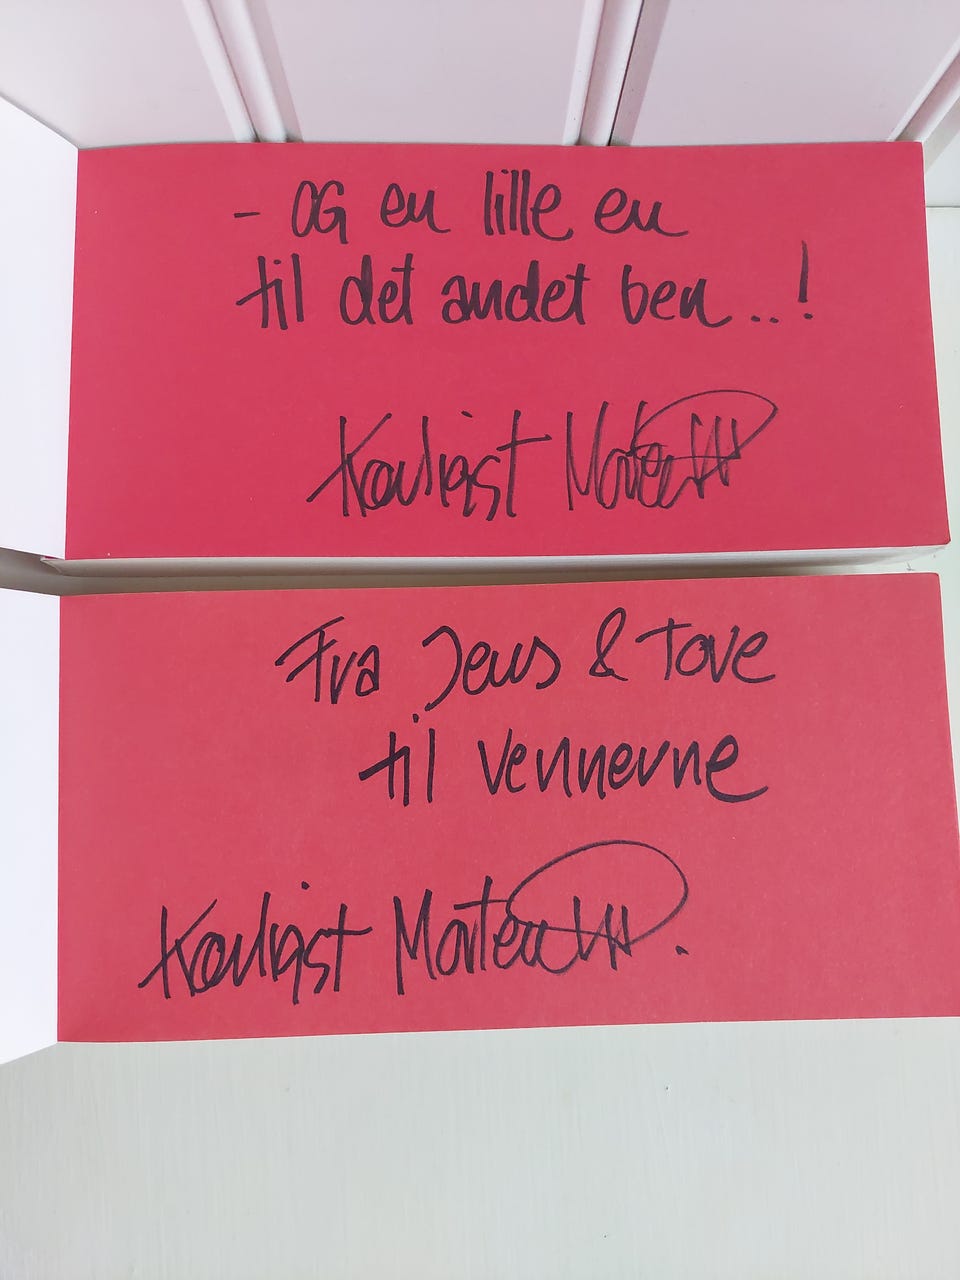 - OG en lille en
til det andet ben...!
Kærligst Morten
Fra Jens & Tove
til vennerne
Kærligst Morten